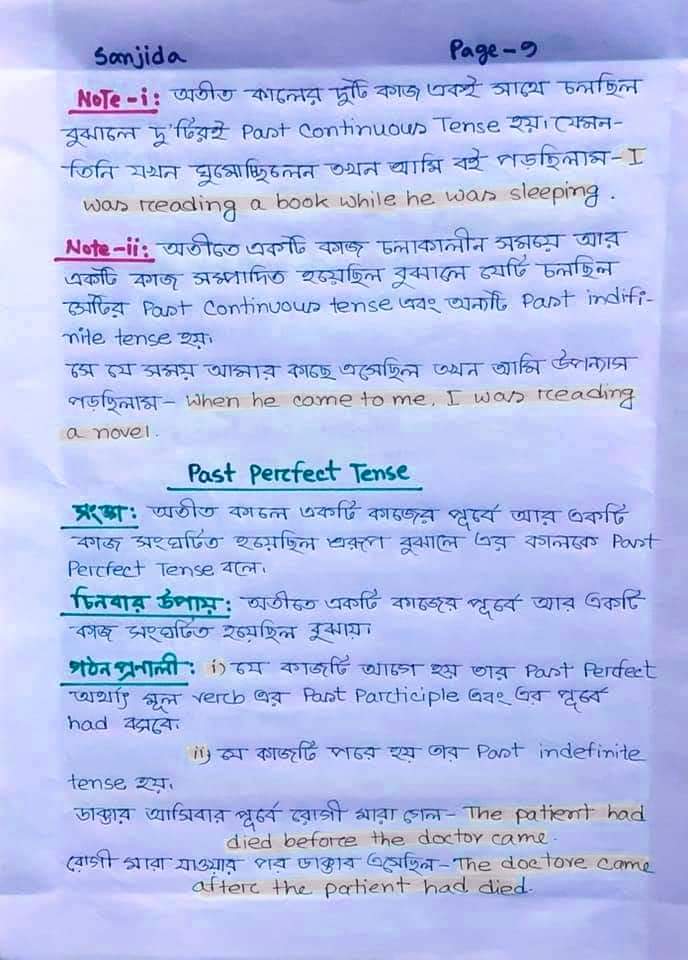 Sanjida Page-9
Note-i: অতীত কালের দুটি কাজ একই সাথে চলছিল
বুঝালে দু'টিরই Past Continuous Tense হয়। যেমন-
তিনি যখন ঘুমোচ্ছিলেন তখন আমি বই পড়ছিলাম- I
was reading a book while he was sleeping.
Note-ii: অতীতে একটি কাজ চলাকালীন সময়ে আর
একটি কাজ সম্পাদিত হয়েছিল বুঝালে যেটি চলছিল
সেটির Past Continuous tense এবং অন্যটি Past indifi-
nite tense হয়।
সে যে সময় আমার কাছে এসেছিল তখন আমি উপন্যাস
পড়ছিলাম- When he came to me, I was reading
a novel.
Past Perfect Tense
সংজ্ঞা: অতীত কালে একটি কাজের পূর্বে আর একটি
কাজ সংঘটিত হয়েছিল এরূপ বুঝালে এর কালকে Past
Perfect Tense বলে।
চিনবার উপায়: অতীতে একটি কাজের পূর্বে আর একটি
কাজ সংঘটিত হয়েছিল বুঝায়।
গঠন প্রনালী: i) যে কাজটি আগে হয় তার Past Perfect
অর্থাৎ মূল verb এর Past Participle এবং এর পূর্বে
had বসবে।
ii) যে কাজটি পরে হয় তার Past indefinite
tense হয়।
ডাক্তার আসিবার পূর্বে রোগী মারা গেল- The patient had
died before the doctor came.
রোগী মারা যাওয়ার পর ডাক্তার এসেছিল- The doctore came
after the patient had died.